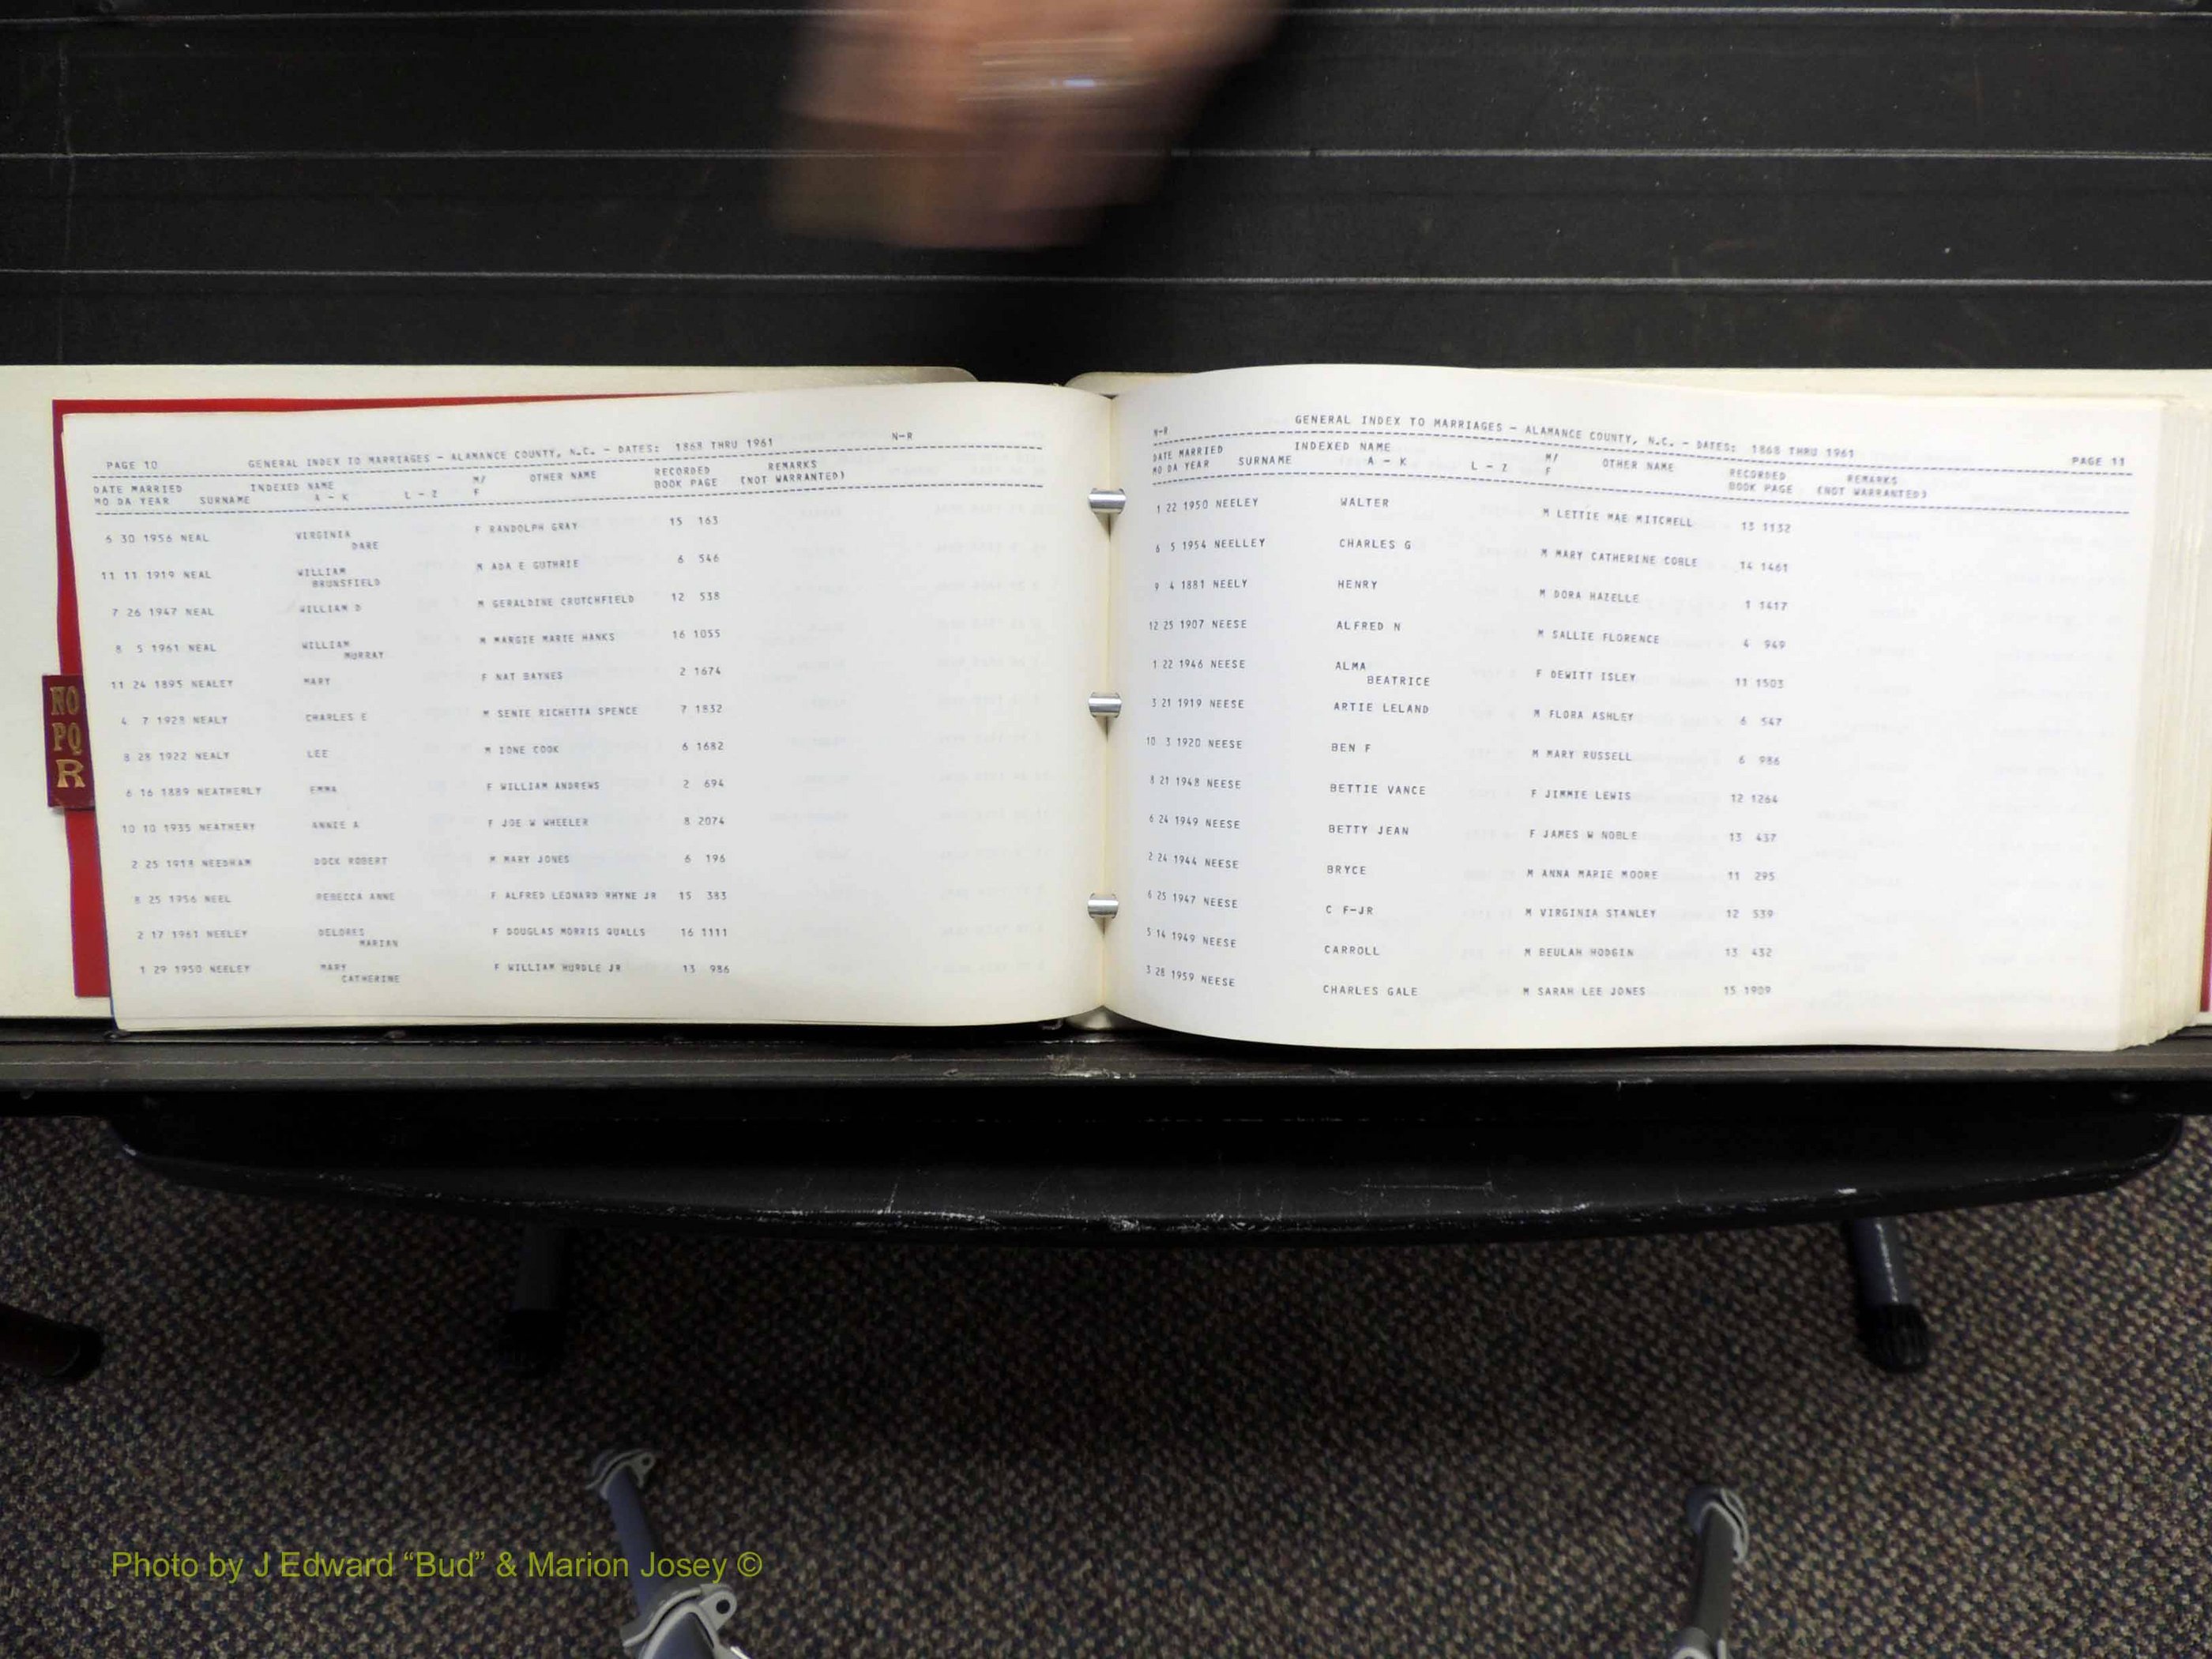 N-R
PAGE 10 GENERAL INDEX TO MARRIAGES - ALAMANCE COUNTY, N.C. - DATES: 1868 THRU 1961
DATE MARRIED INDEXED NAME M/ OTHER NAME RECORDED REMARKS
MO DA YEAR SURNAME A - K L - Z F BOOK PAGE (NOT WARRANTED)
6 30 1956 NEAL VIRGINIA F RANDOLPH GRAY 15 163
DARE
11 11 1919 NEAL WILLIAM M ADA E GUTHRIE 6 546
BRUNSFIELD
7 26 1947 NEAL WILLIAM D M GERALDINE CRUTCHFIELD 12 538
8 5 1961 NEAL WILLIAM M MARGIE MARIE HANKS 16 1055
MURRAY
11 24 1895 NEALEY MARY F NAT BAYNES 2 1674
4 7 1928 NEALY CHARLES E M SENIE RICHETTA SPENCE 7 1832
8 28 1922 NEALY LEE M IONE COOK 6 1682
6 16 1889 NEATHERLY EMMA F WILLIAM ANDREWS 2 694
10 10 1935 NEATHERY ANNIE A F JOE W WHEELER 8 2074
2 25 1918 NEEDHAM DOCK ROBERT M MARY JONES 6 196
8 25 1956 NEEL REBECCA ANNE F ALFRED LEONARD RHYNE JR 15 383
2 17 1961 NEELEY DELORES F DOUGLAS MORRIS QUALLS 16 1111
MARIAN
1 29 1950 NEELEY MARY F WILLIAM HURDLE JR 13 986
CATHERINE
NO
PQ
R
N-R GENERAL INDEX TO MARRIAGES - ALAMANCE COUNTY, N.C. - DATES: 1868 THRU 1961 PAGE 11
DATE MARRIED INDEXED NAME M/ OTHER NAME RECORDED REMARKS
MO DA YEAR SURNAME A - K L - Z F BOOK PAGE (NOT WARRANTED)
1 22 1950 NEELEY WALTER M LETTIE MAE MITCHELL 13 1132
6 5 1954 NEELLEY CHARLES G M MARY CATHERINE COBLE 14 1461
9 4 1881 NEELY HENRY M DORA HAZELLE 1 1417
12 25 1907 NEESE ALFRED N M SALLIE FLORENCE 4 949
1 22 1946 NEESE ALMA F DEWITT ISLEY 11 1503
BEATRICE
3 21 1919 NEESE ARTIE LELAND M FLORA ASHLEY 6 547
10 3 1920 NEESE BEN F M MARY RUSSELL 6 986
8 21 1948 NEESE BETTIE VANCE F JIMMIE LEWIS 12 1264
6 24 1949 NEESE BETTY JEAN F JAMES W NOBLE 13 437
2 24 1944 NEESE BRYCE M ANNA MARIE MOORE 11 295
6 25 1947 NEESE C F-JR M VIRGINIA STANLEY 12 539
5 14 1949 NEESE CARROLL M BEULAH HODGIN 13 432
3 28 1959 NEESE CHARLES GALE M SARAH LEE JONES 15 1909
Photo by J Edward “Bud” & Marion Josey ©